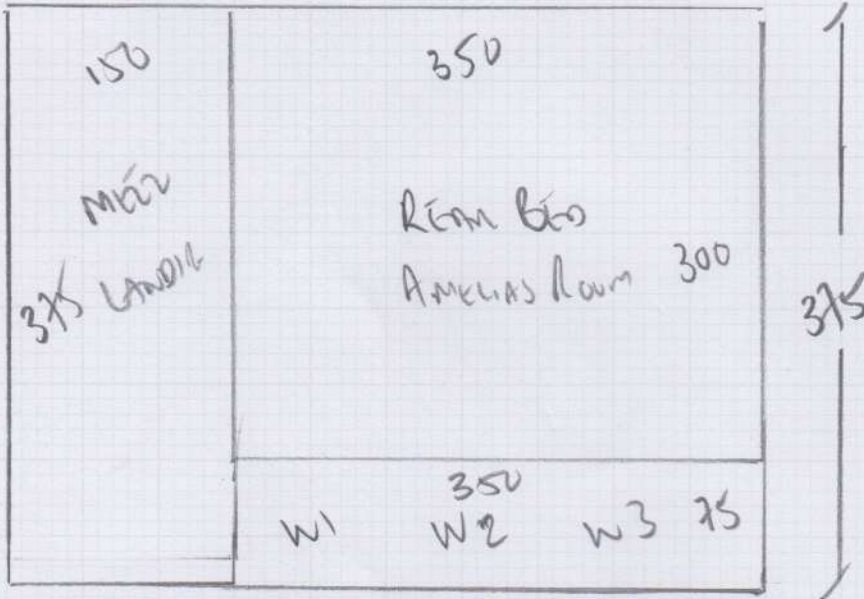 150
350
MEZZ
375 LANDIG
REAR BED
AMELIAS ROOM 300
375
350
W1 W2 W3 75